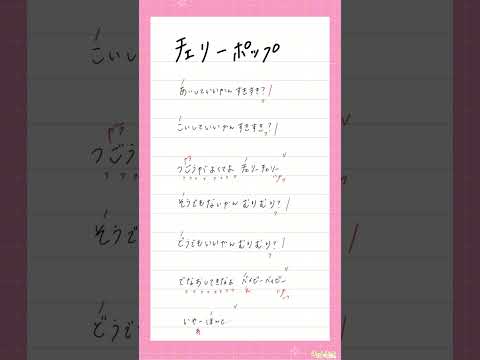 チェリーポップ
あいしていいやん すきすき?
こいしていいやん すきすき?
つごうがよくてよ チェリーチェリー
そうでもないやん むりむり?
どうでもいいやん むりむり?
でなおしてきなよ ベイビーベイビー